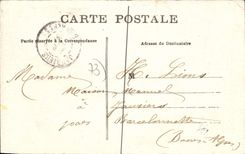 CARTE POSTALE
Partie réservée à la Correspondance
Adresse du Destinataire
Madame H. Lions
Maison Manuel
à Jausiers
par Barcelonnette
(Basses Alpes)
33